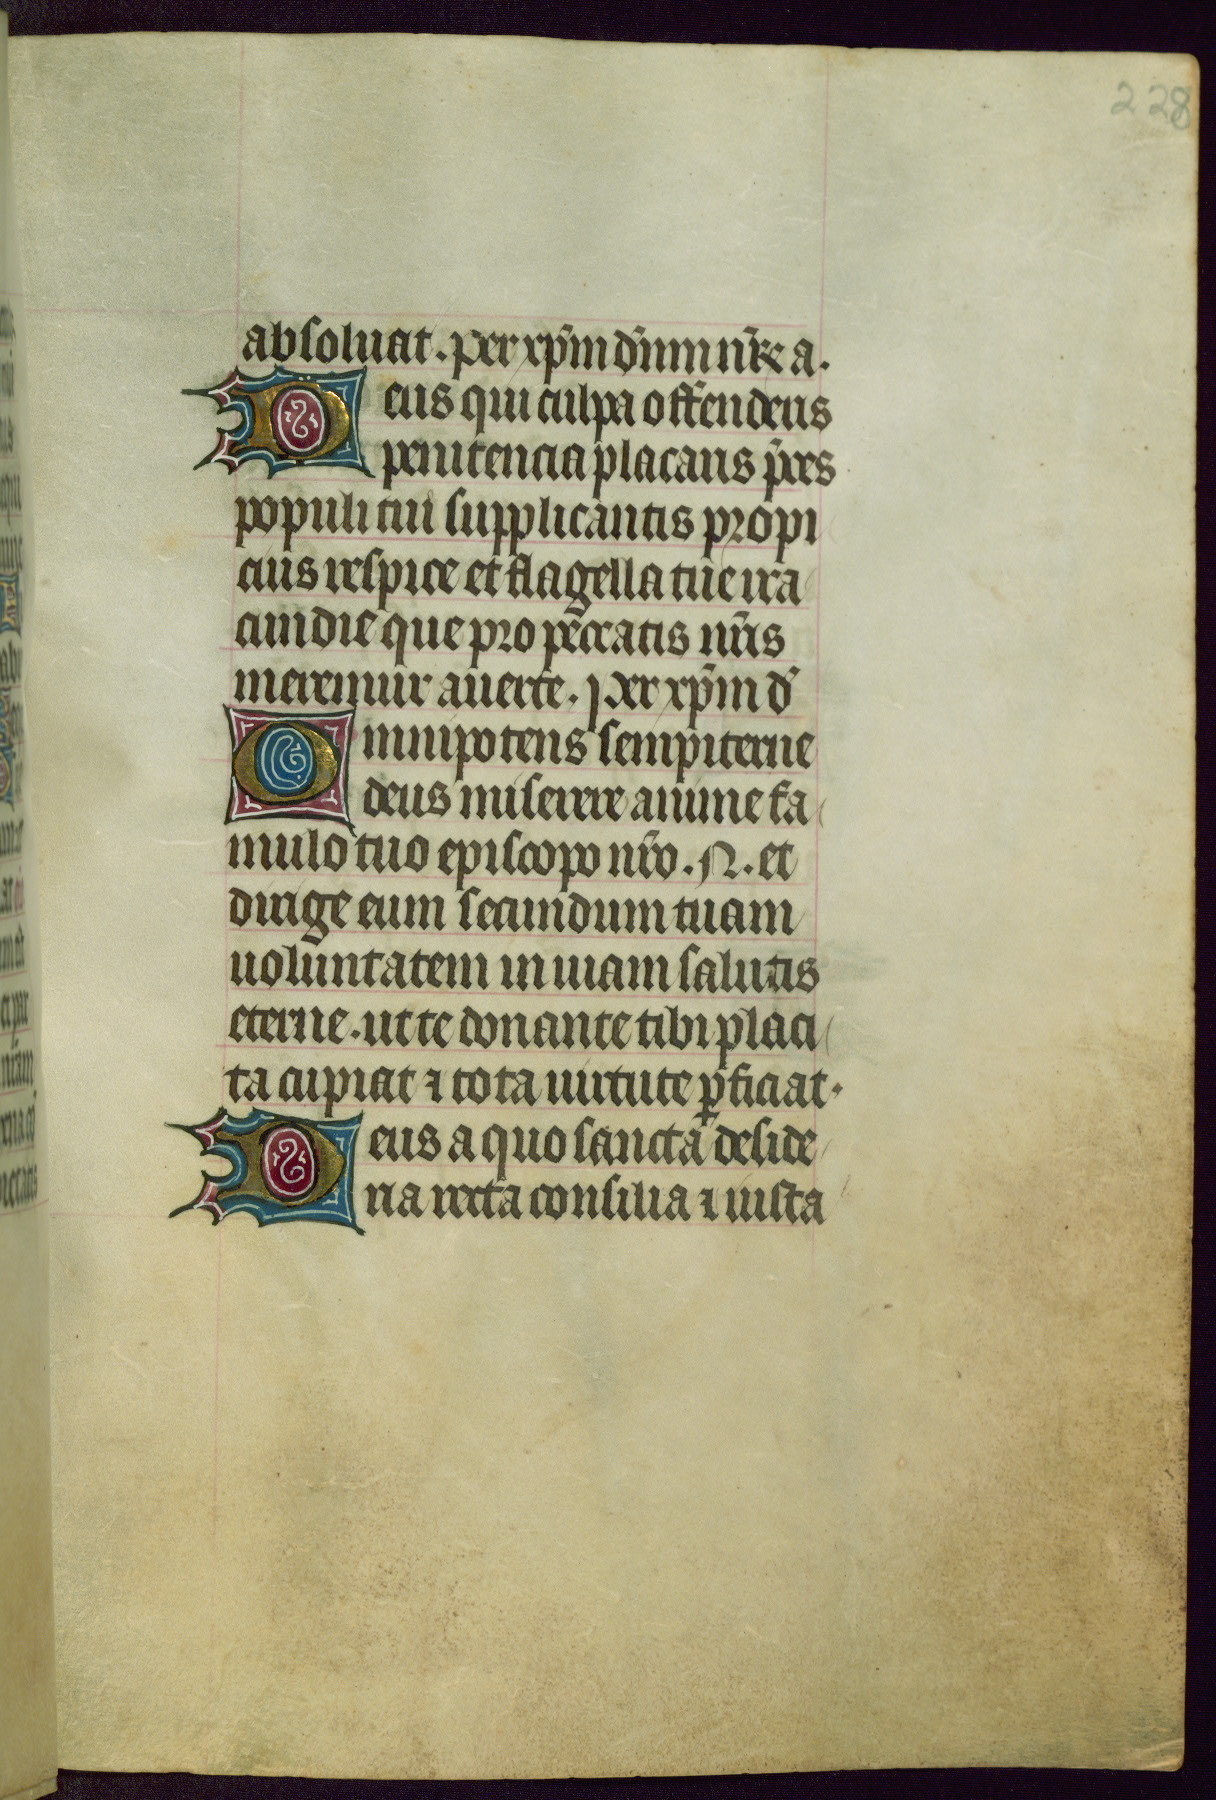 228
absoluat. per xp̄m dn̄m nr̄e a.
Deus qui culpa offenderis
penitencia placaris p̄ces
populi tui supplicantis propi
cius respice et flagella tue ira
cundie que pro pec̄catis nr̄is
meremur auerte. per xp̄m d̄
Omnipotens sempiterne
deus miserere anime fa
mulo tuo episcopo nr̄o. N. et
dirige eum secundum tuam
uoluntatem in uiam salutis
eterne. ut te donante tibi placi
ta cupiat ⁊ tota uirtute ꝑficiat.
Deus a quo sancta deside
ria recta consilia ⁊ iusta